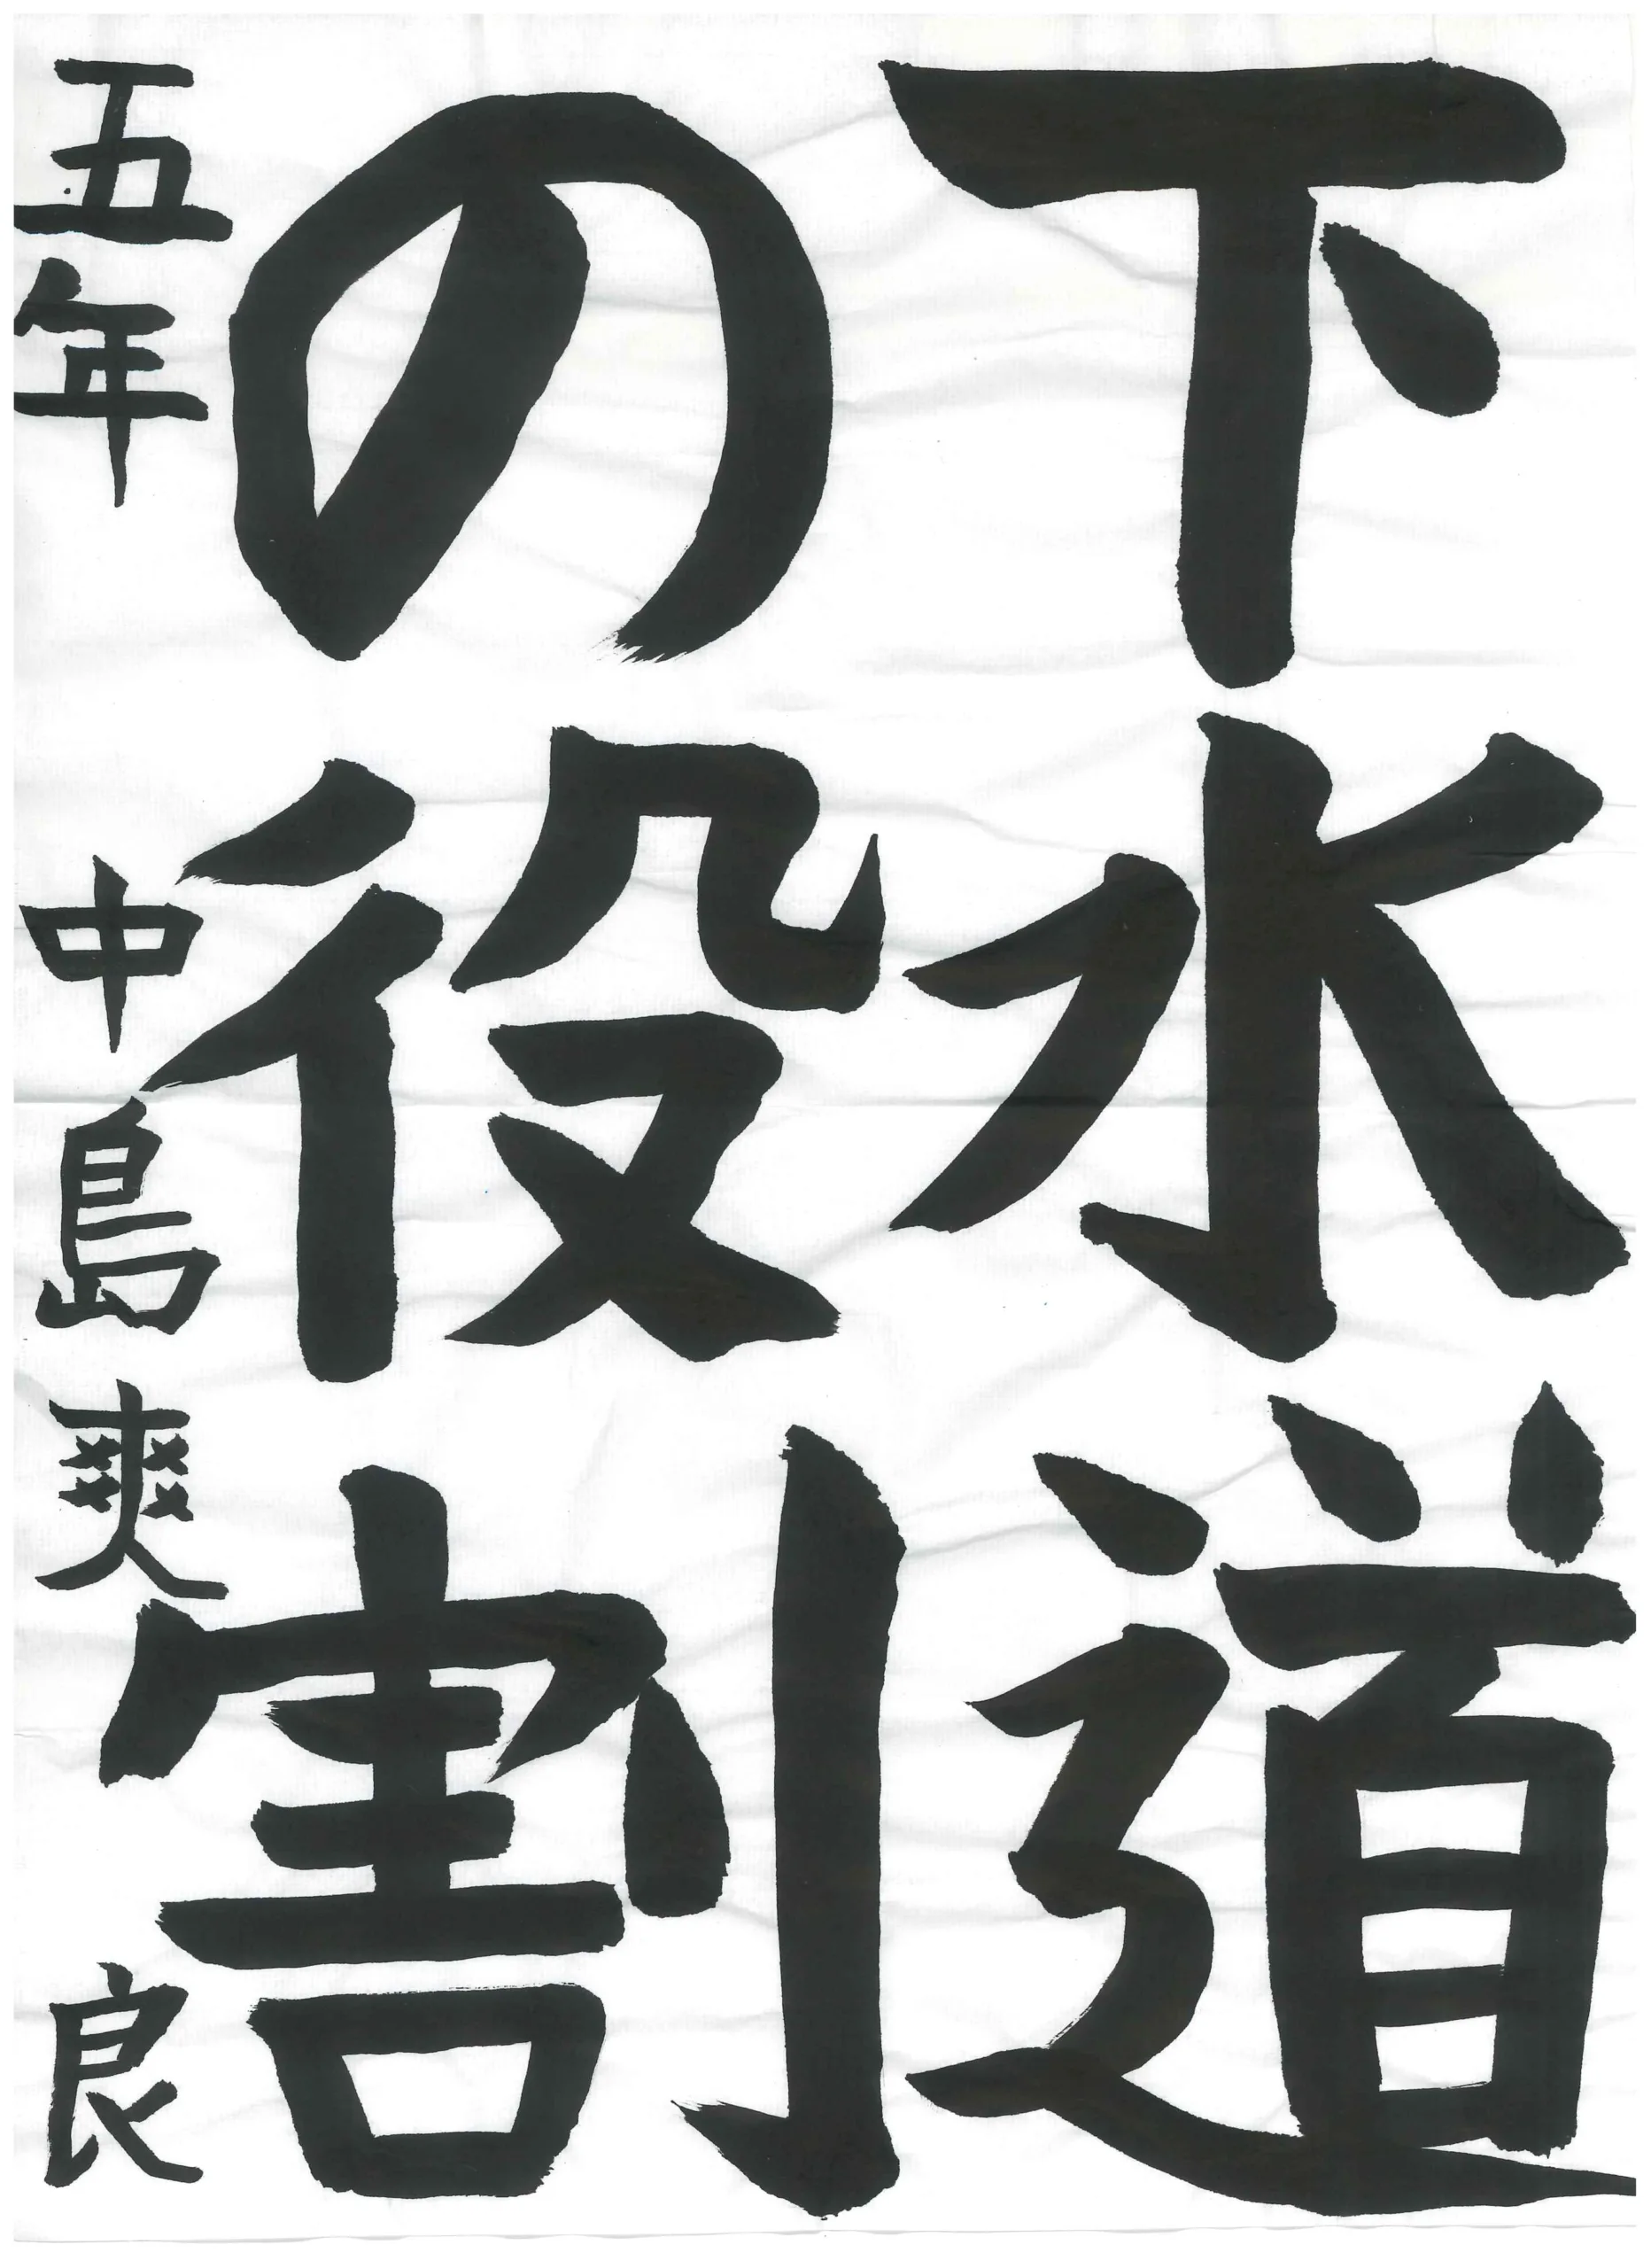 下水道
の役割
五年 中島爽良